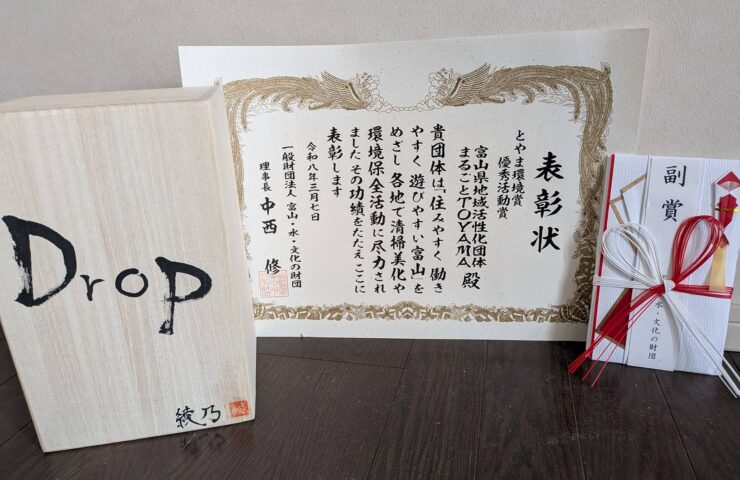 Drop
綾乃
表彰状
とやま環境賞
優秀活動賞
富山県地域活性化団体
まるごとTOYAMA 殿
貴団体は「住みやすく 働き
やすく 遊びやすい富山」を
めざし 各地で清掃美化や
環境保全活動に尽力され
ました その功績をたたえ ここに
表彰します
令和八年三月七日
一般財団法人 富山・水・文化の財団
理事長 中西 修
副賞
水・文化の財団